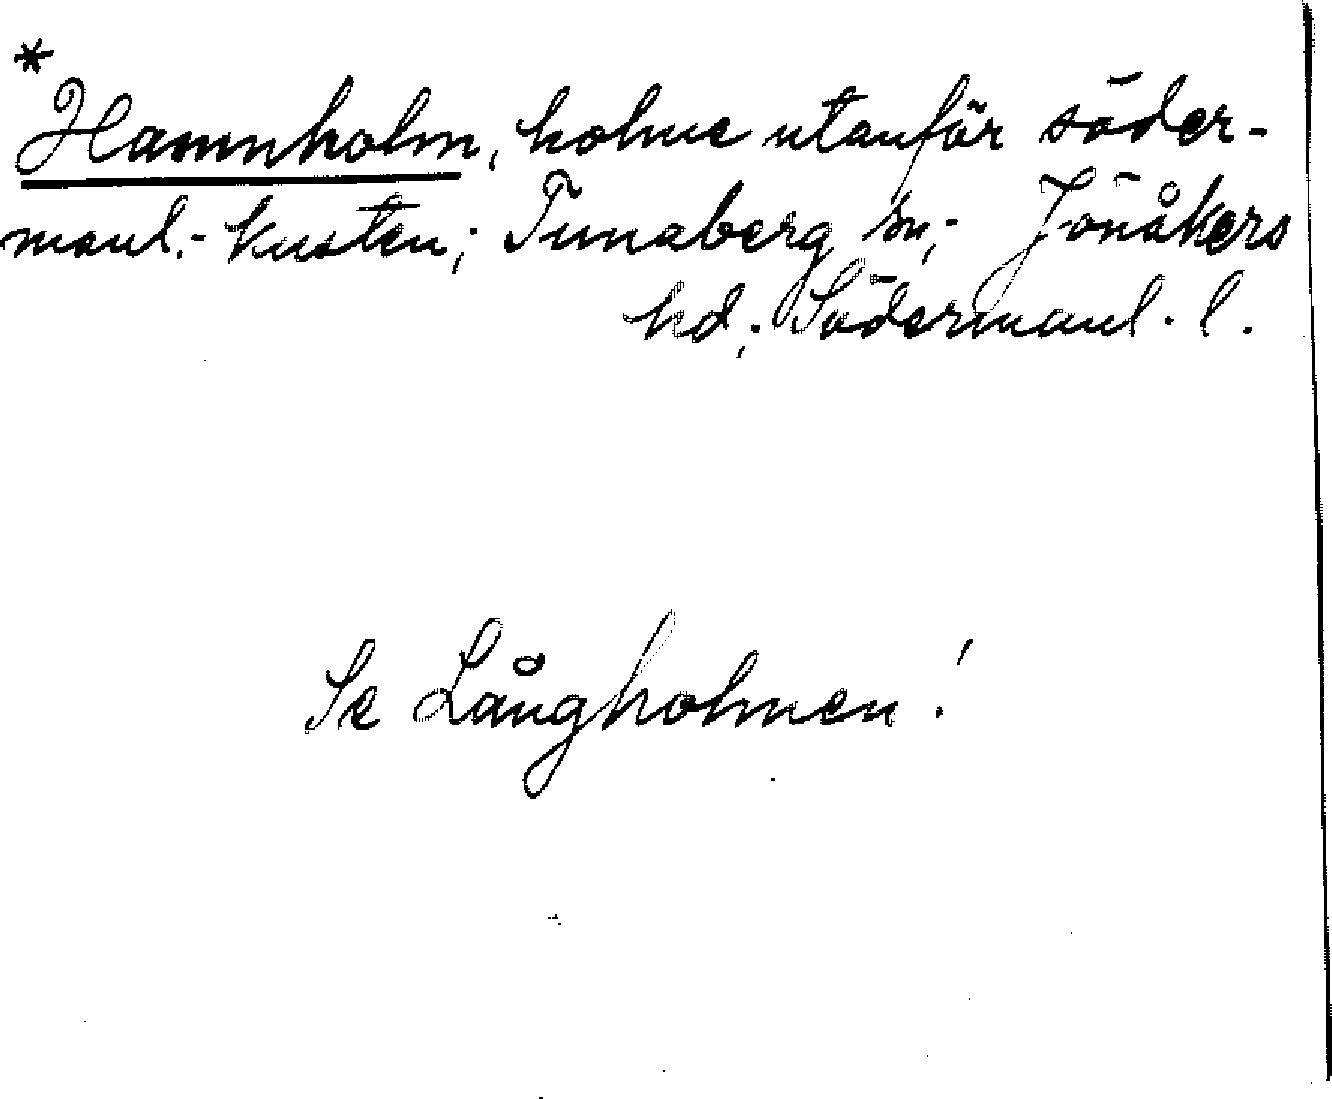 *
Hamnholm, holme utanför söder-
manl.-kusten; Tunaberg sn; Jönåkers
hd; Södermanl. l.
Se Långholmen!